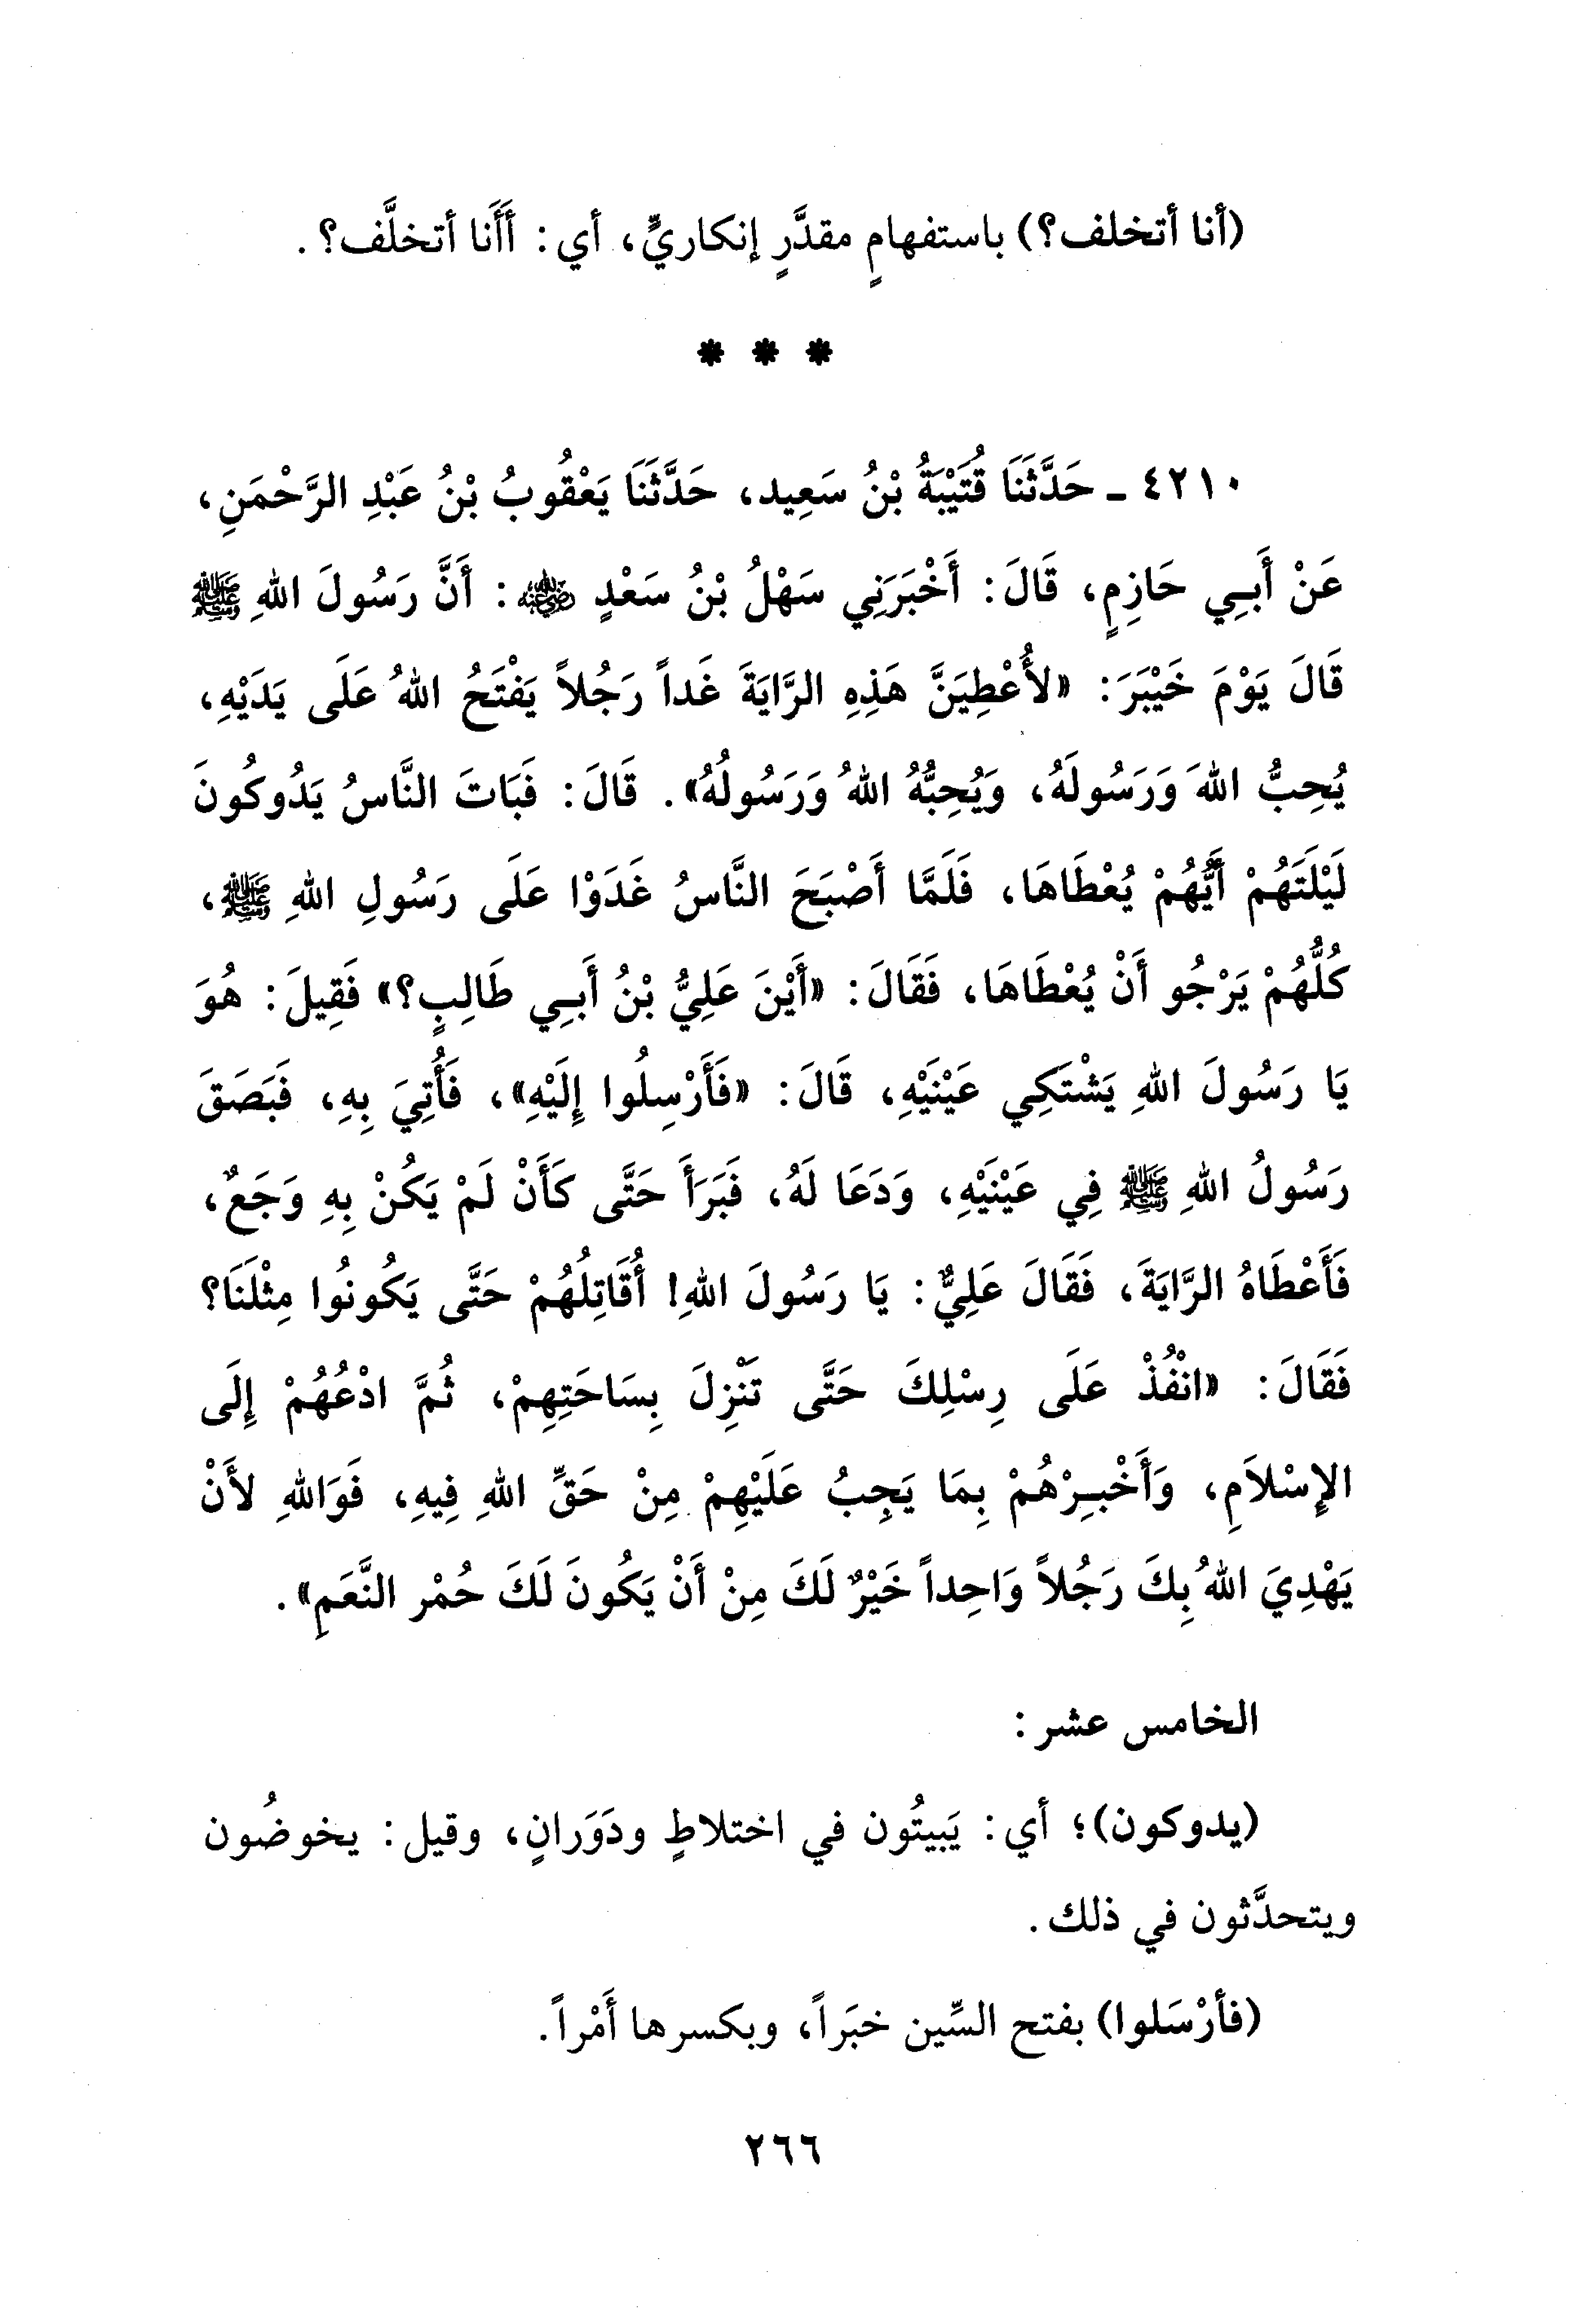 (أنا أتخلف؟) باستفهامٍ مقدَّرٍ إنكاريٍّ، أي: أَأَنا أتخلَّف؟.
* * *
٤٢١٠ - حَدَّثَنَا قُتَيْبَةُ بْنُ سَعِيد، حَدَّثَنَا يَعْقُوبُ بْنُ عَبْدِ الرَّحْمَنِ،
عَنْ أَبِي حَازِمٍ، قَالَ: أَخْبَرَنِي سَهْلُ بْنُ سَعْدٍ رضي الله عنه: أَنَّ رَسُولَ اللهِ ﷺ
قَالَ يَوْمَ خَيْبَرَ: «لأُعْطِيَنَّ هَذِهِ الرَّايَةَ غَداً رَجُلاً يَفْتَحُ اللهُ عَلَى يَدَيْهِ،
يُحِبُّ اللهَ وَرَسُولَهُ، وَيُحِبُّهُ اللهُ وَرَسُولُهُ». قَالَ: فَبَاتَ النَّاسُ يَدُوكُونَ
لَيْلَتَهُمْ أَيُّهُمْ يُعْطَاهَا، فَلَمَّا أَصْبَحَ النَّاسُ غَدَوْا عَلَى رَسُولِ اللهِ ﷺ،
كُلُّهُمْ يَرْجُو أَنْ يُعْطَاهَا، فَقَالَ: «أَيْنَ عَلِيُّ بْنُ أَبِي طَالِبٍ؟» فَقِيلَ: هُوَ
يَا رَسُولَ اللهِ يَشْتَكِي عَيْنَيْهِ، قَالَ: «فَأَرْسِلُوا إِلَيْهِ»، فَأُتِيَ بِهِ، فَبَصَقَ
رَسُولُ اللهِ ﷺ فِي عَيْنَيْهِ، وَدَعَا لَهُ، فَبَرَأَ حَتَّى كَأَنْ لَمْ يَكُنْ بِهِ وَجَعٌ،
فَأَعْطَاهُ الرَّايَةَ، فَقَالَ عَلِيٌّ: يَا رَسُولَ اللهِ! أُقَاتِلُهُمْ حَتَّى يَكُونُوا مِثْلَنَا؟
فَقَالَ: «انْفُذْ عَلَى رِسْلِكَ حَتَّى تَنْزِلَ بِسَاحَتِهِمْ، ثُمَّ ادْعُهُمْ إِلَى
الإِسْلاَمِ، وَأَخْبِرْهُمْ بِمَا يَجِبُ عَلَيْهِمْ مِنْ حَقِّ اللهِ فِيهِ، فَوَاللهِ لأَنْ
يَهْدِيَ اللهُ بِكَ رَجُلاً وَاحِداً خَيْرٌ لَكَ مِنْ أَنْ يَكُونَ لَكَ حُمْر النَّعَمِ».
الخامس عشر:
(يدوكون)؛ أي: يَبيتُون في اختلاطٍ ودَوَرانٍ، وقيل: يخوضُون
ويتحدَّثون في ذلك.
(فأرْسَلوا) بفتح السِّين خبَراً، وبكسرها أَمْراً.
٢٦٦